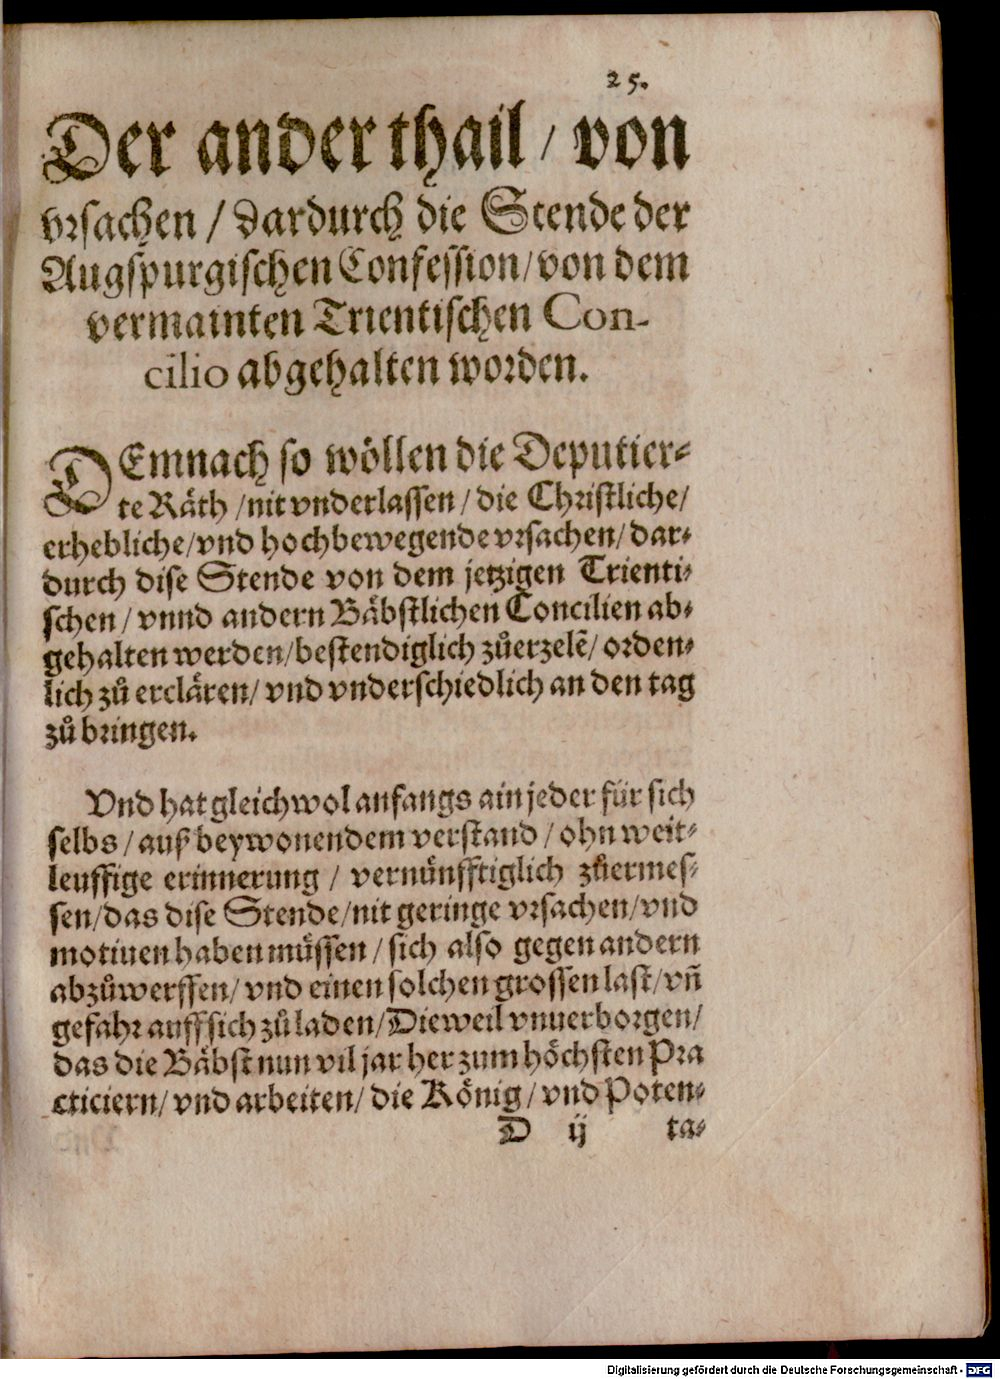 25.
Der ander thail / von
vrsachen / dardurch die Stende der
Augspurgischen Confession / von dem
vermainten Trientischen Con-
cilio abgehalten worden.
DEmnach so wöllen die Deputier-
te Räth / nit vnderlassen / die Christliche /
erhebliche / vnd hochbewegende vrsachen / dar-
durch dise Stende von dem jetzigen Trienti-
schen / vnnd andern Bäbstlichen Concilien ab-
gehalten werden / bestendiglich zůerzelē / orden-
lich zů erclären / vnd vnderschiedlich an den tag
zů bringen.
Vnd hat gleichwol anfangs ain jeder für sich
selbs / auß beywonendem verstand / ohn weit-
leuffige erinnerung / vernünfftiglich zůermes-
sen / das dise Stende / nit geringe vrsachen / vnd
motiuen haben müssen / sich also gegen andern
abzůwerffen / vnd einen solchen grossen last / vñ
gefahr auff sich zů laden / Dieweil vnuerborgen /
das die Bäbst nun vil jar her zum höchsten Pra
cticiern / vnd arbeiten / die König / vnd Poten-
D ij ta-
Digitalisierung gefördert durch die Deutsche Forschungsgemeinschaft - DFG